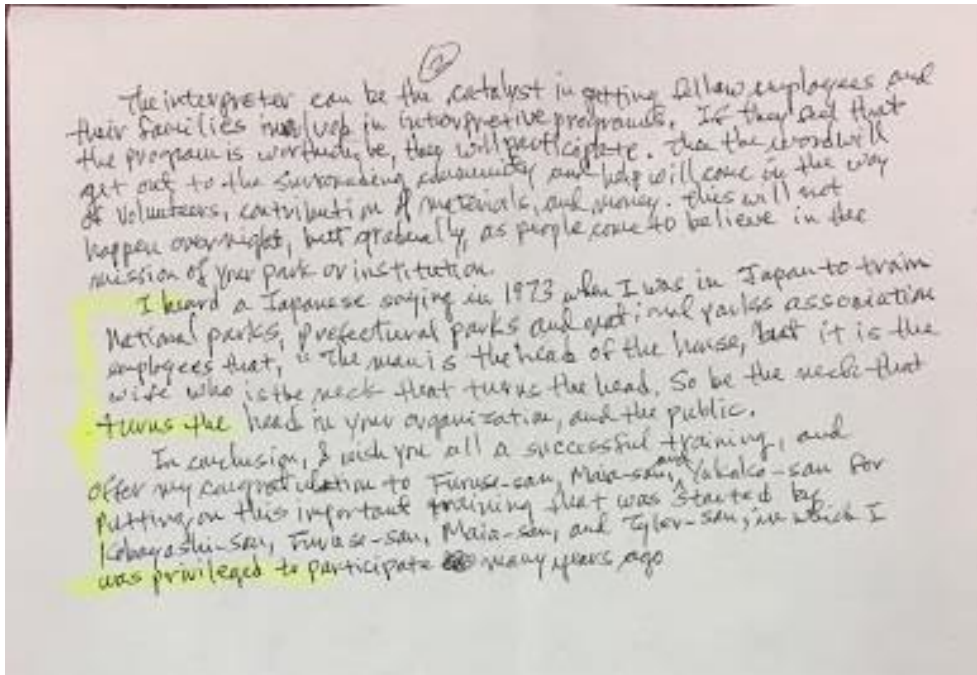 ②
The interpreter can be the catalyst in getting fellow employees and
their families involved in interpretive programs. If they feel that
the program is worthwhile, they will participate. Then the word will
get out to the surrounding community and help will come in the way
of volunteers, contribution of materials, and money. This will not
happen overnight, but gradually, as people come to believe in the
mission of your park or institution.
I heard a Japanese saying in 1973 when I was in Japan to train
National parks, prefectural parks and national parks association
employees that, "The man is the head of the house, but it is the
wife who is the neck that turns the head. So be the neck that
turns the head in your organization, and the public.
In conclusion, I wish you all a successful training, and
offer my congratulation to Furuse-san, Maia-san, and -san for
putting on this important training that was started by
Kobayashi-san, Furuse-san, Maia-san, and Tyler-san, in which I
was privileged to participate many years ago